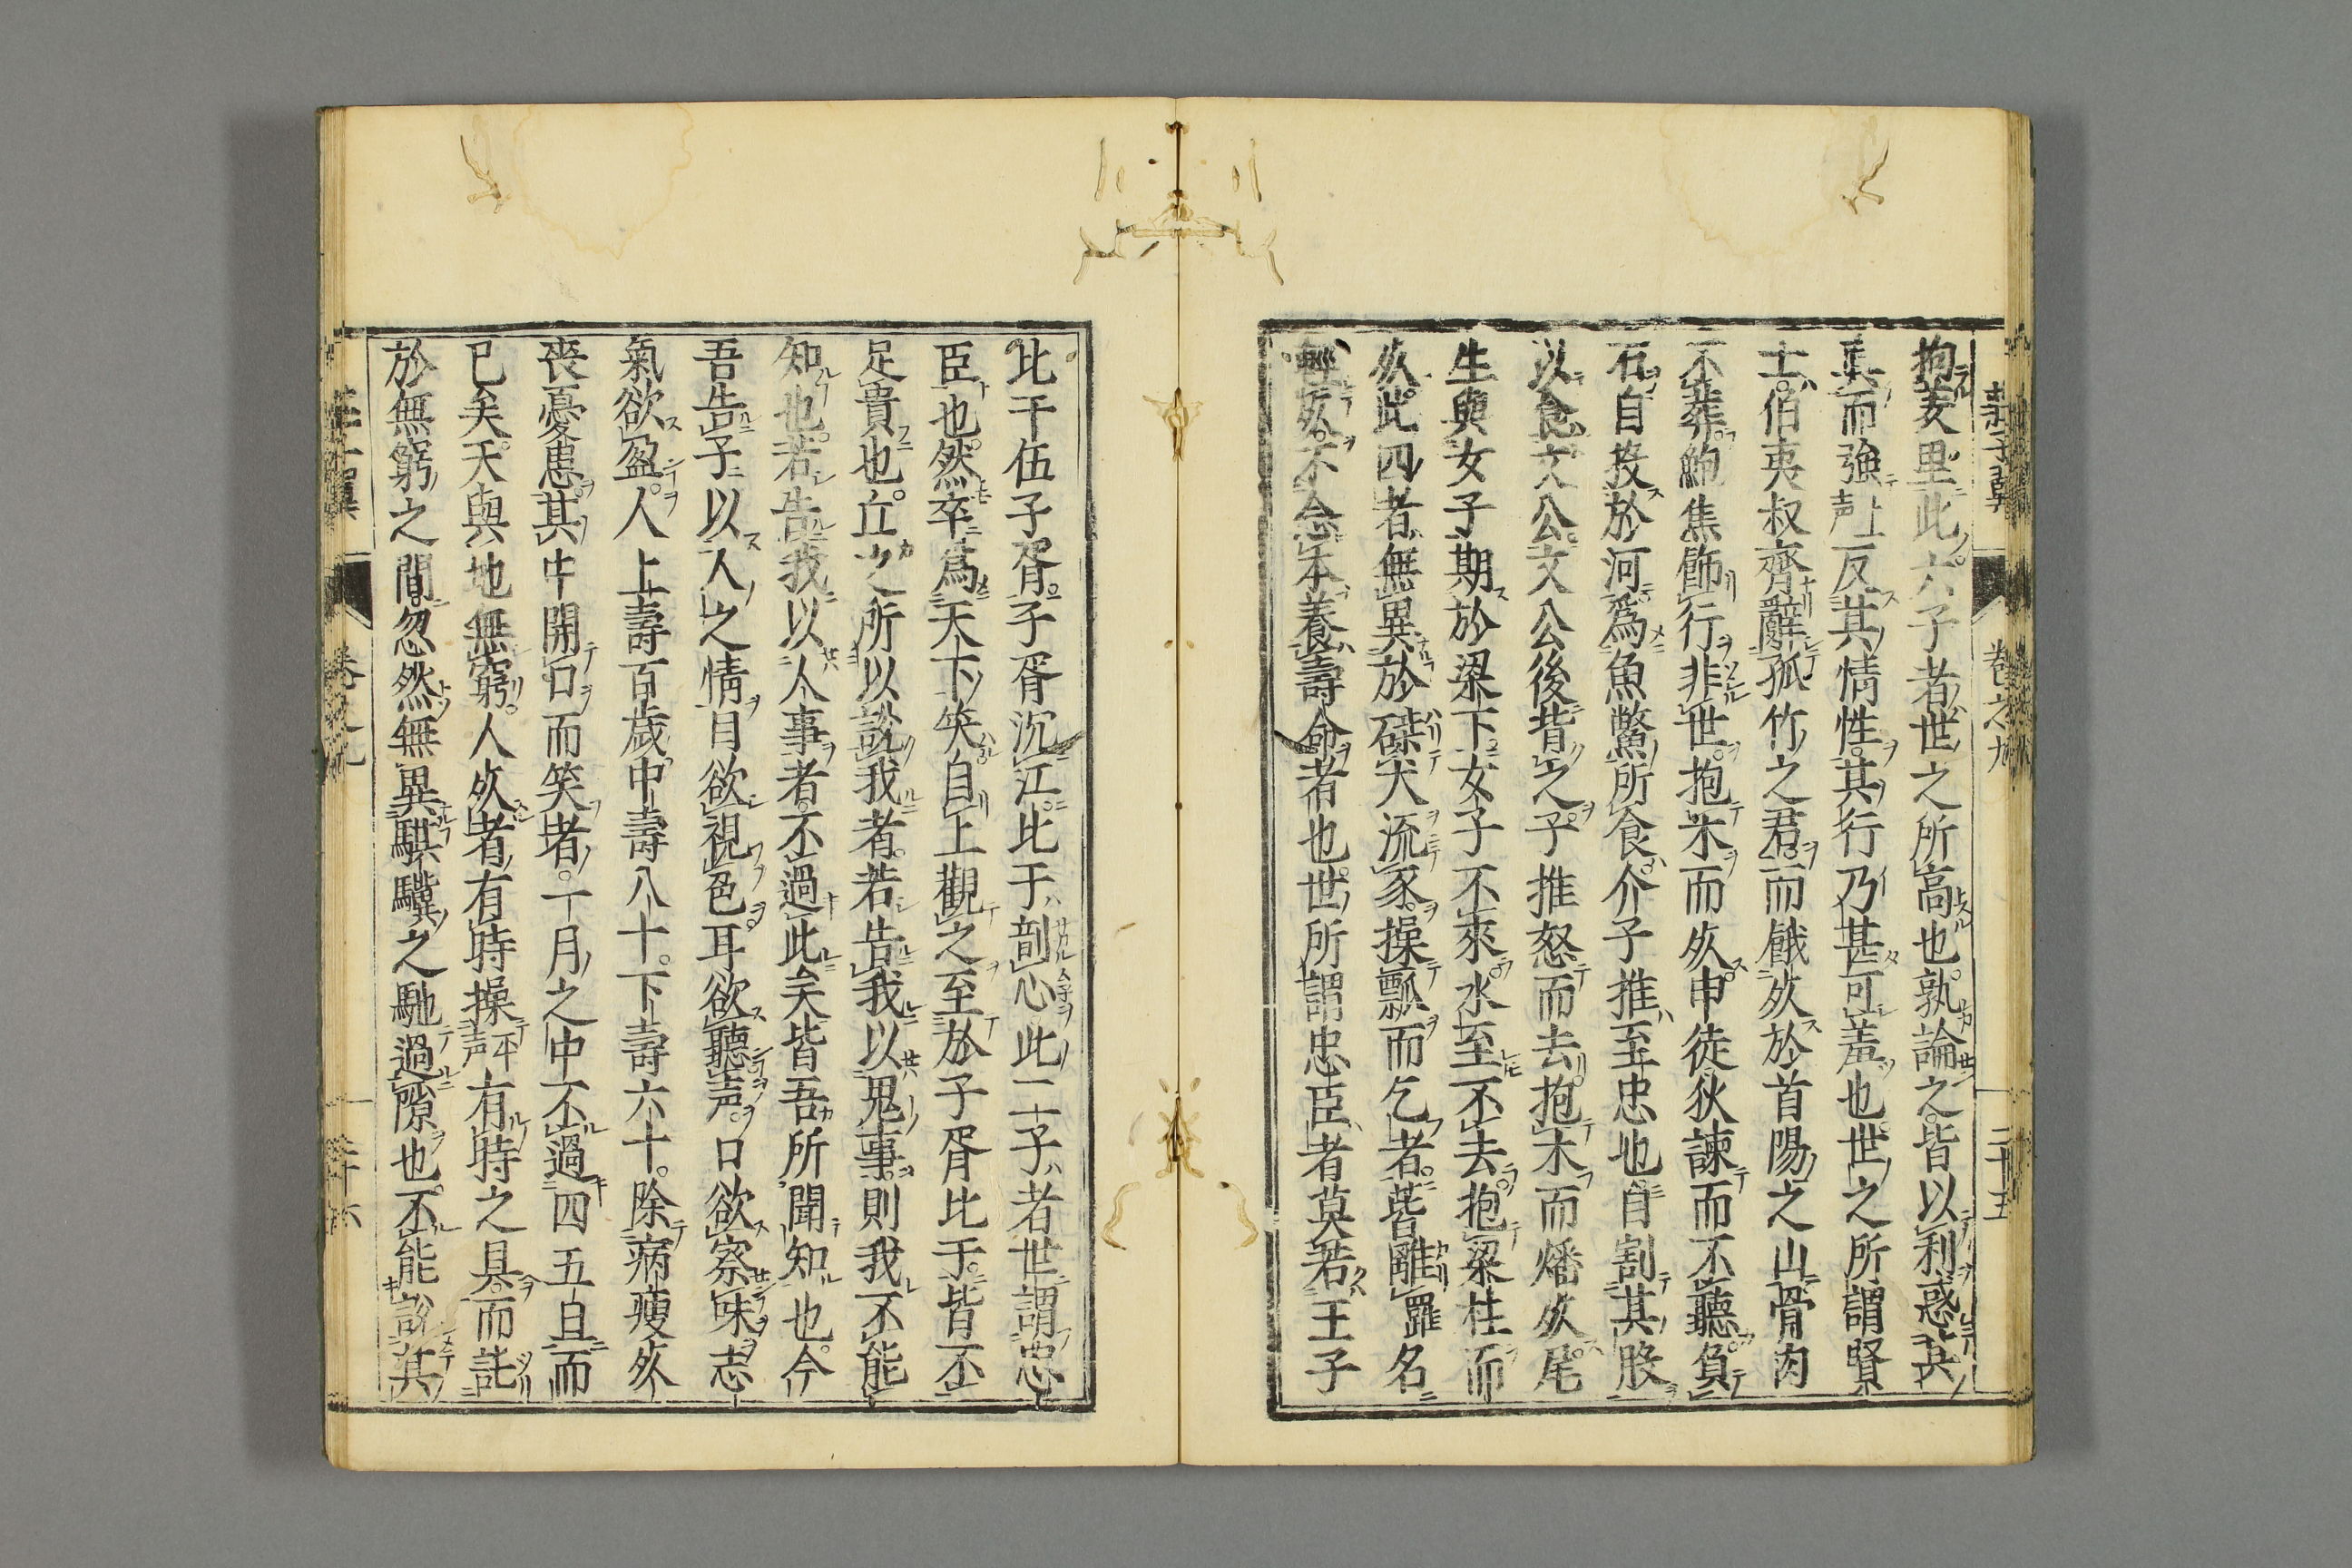 拘羑里此六子者世之所高也孰論之皆以利惑其
真而強上声反其情性其行乃甚可羞也世之所謂賢
士伯夷叔齊辭孤竹之君而餓死於首陽之山骨肉
不葬鮑焦飾行非世抱木而死申徒狄諫而不聽負
石自投於河爲魚鱉所食介子推至忠也自割其股
以食文公文公後背之子推怒而去抱木而燔死尾
生與女子期於梁下女子不來水至不去抱梁柱而
死此四者無異於磔犬流豕操瓢而乞者皆離罹名
輕死不念本養壽命者也世所謂忠臣者莫若王子
比干伍子胥子胥沉江比干剖心此二子者世謂忠
臣也然卒爲天下笑自上觀之至於子胥比干皆不
足貴也丘之所以說我者若告我以鬼事則我不能
知也若告我以人事者不過此矣皆吾所聞知也今
吾告子以人之情目欲視色耳欲聽声口欲察味志
氣欲盈人上壽百歲中壽八十下壽六十除病瘦死
喪憂患其中開口而笑者一月之中不過四五日而
已矣天與地無窮人死者有時操平声有時之具而託
於無窮之間忽然無異騏驥之馳過隙也不能說其
卷之九
二十五